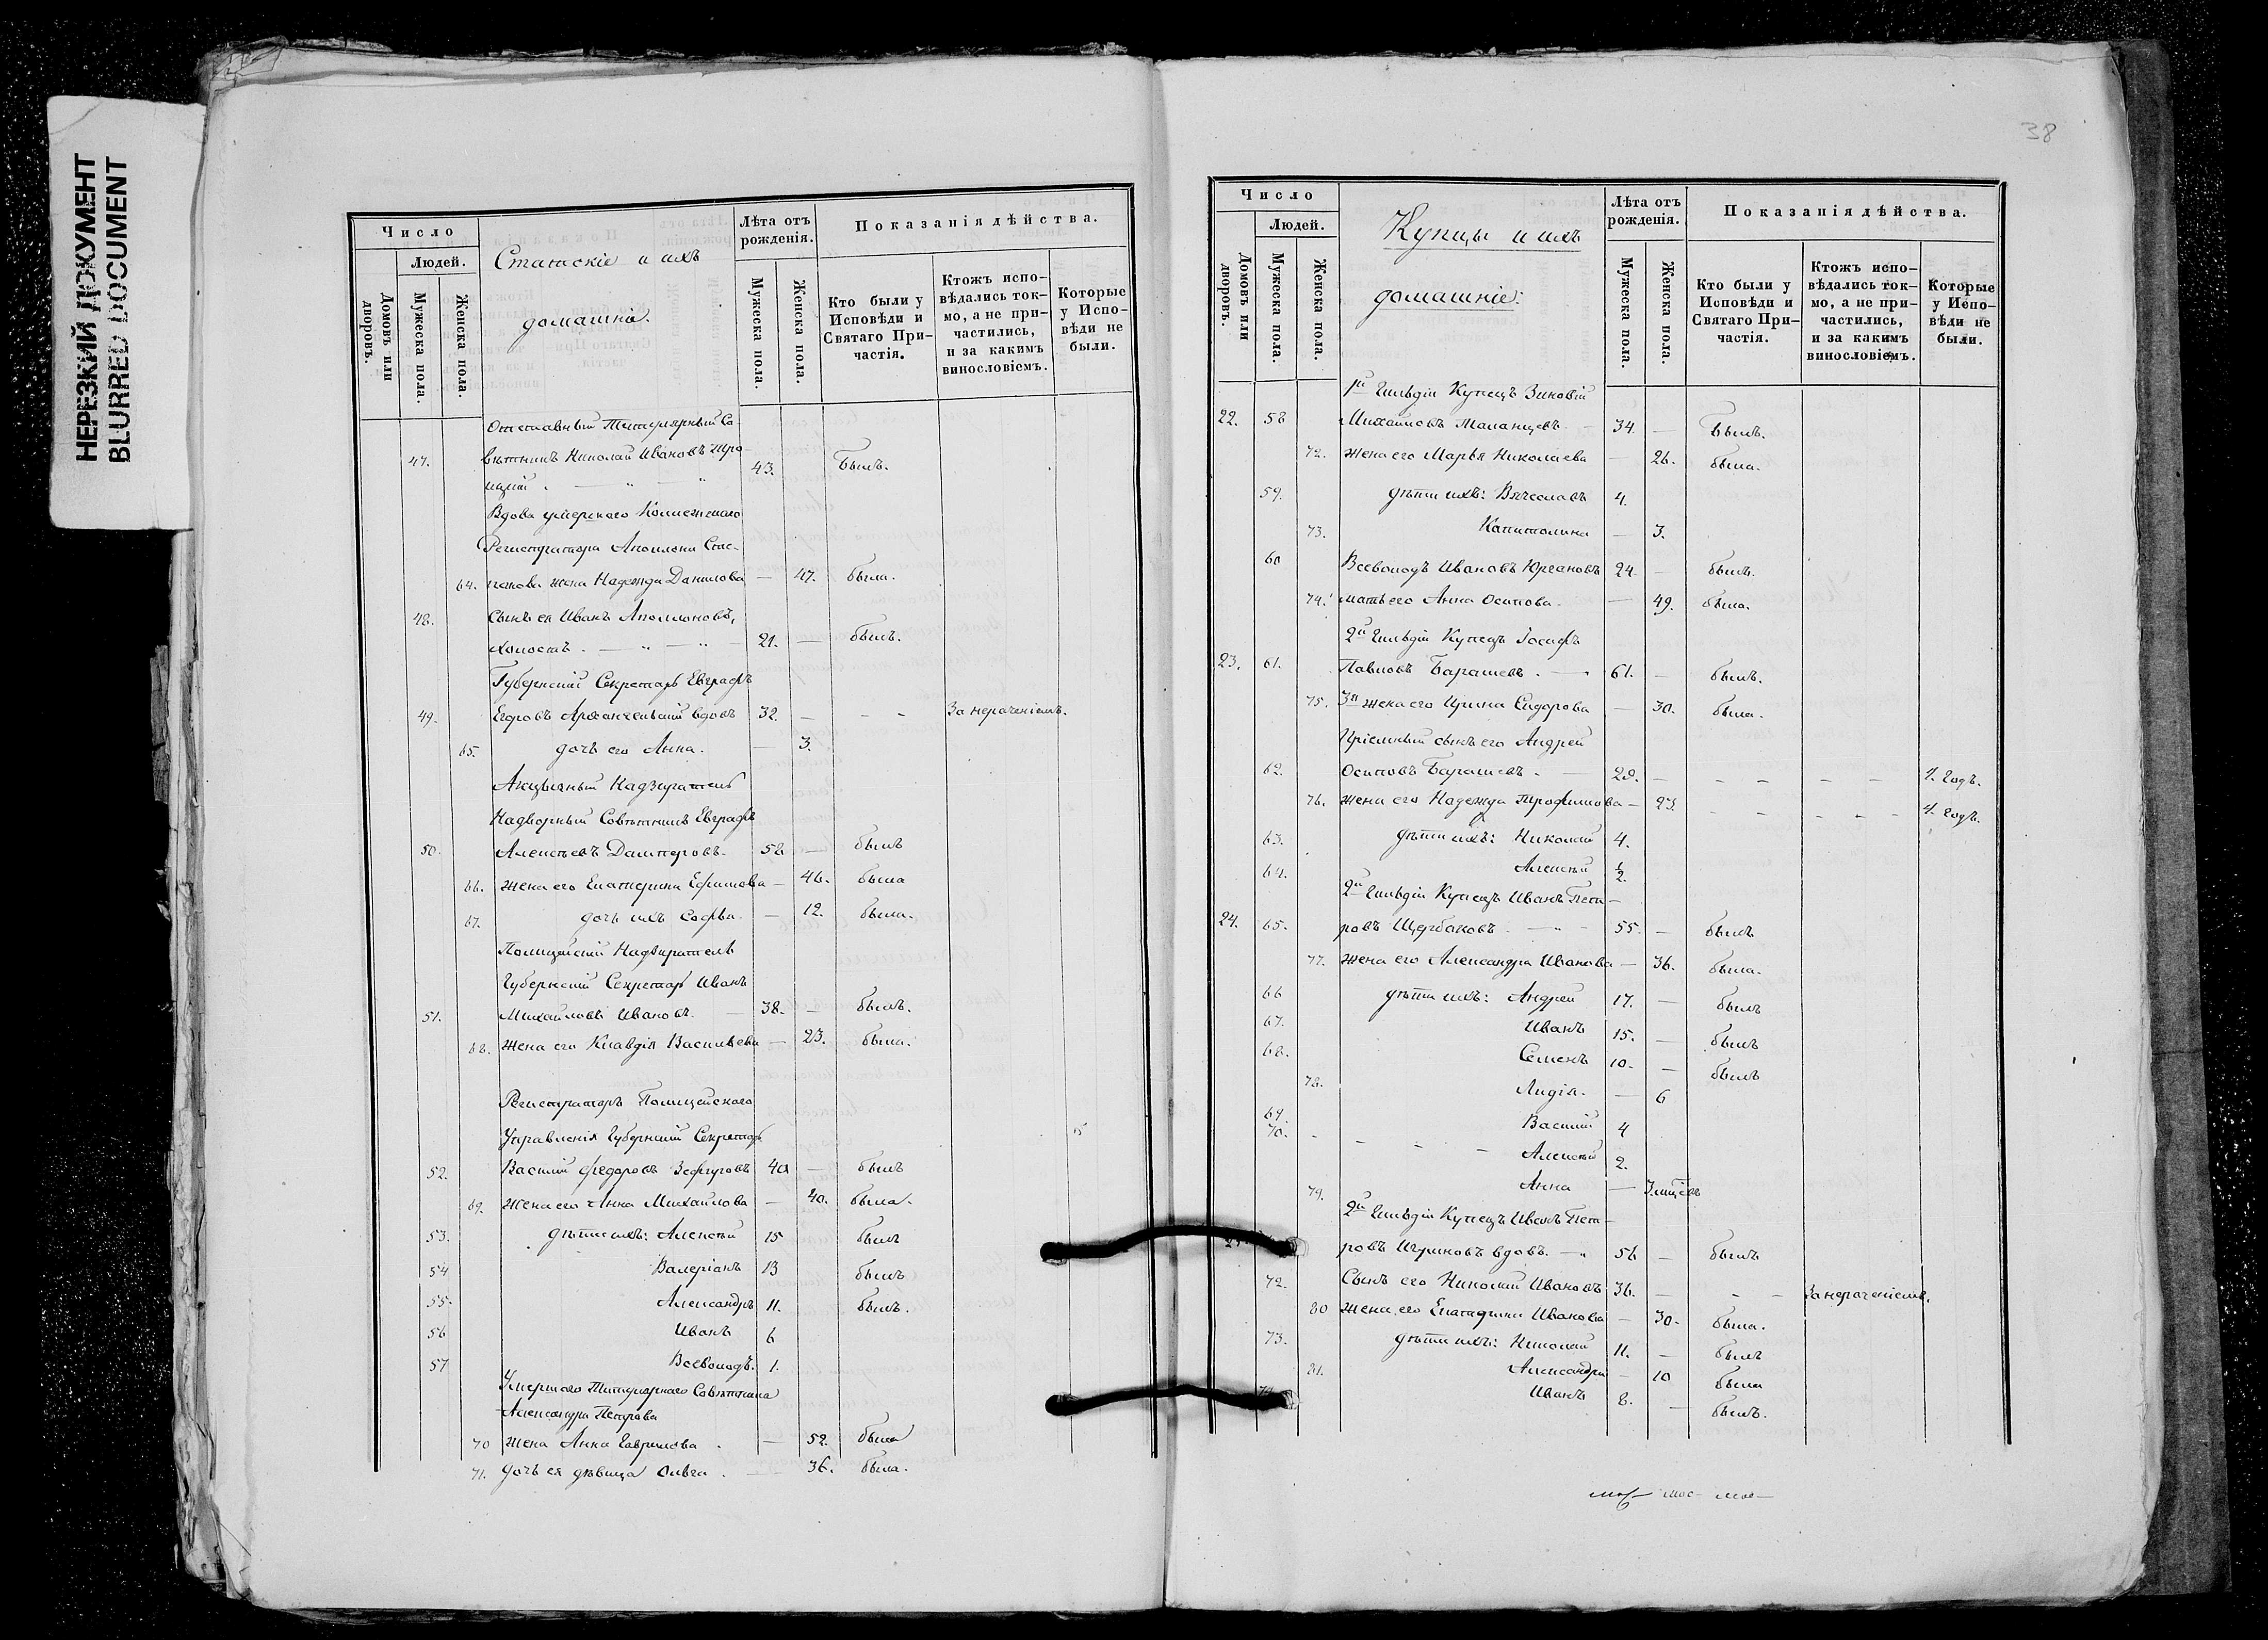 НЕРЕЗКИЙ ДОКУМЕНТ
BLURRED DOCUMENT
Число
Людей.
Домовъ или дворовъ.
Мужеска пола.
Женска пола.
Статскіе и ихъ
домашніе.
Лѣта отъ рожденія.
Мужеска пола.
Женска пола.
Показанія дѣйства.
Кто были у Исповѣди и Святаго Причастія.
Ктожъ исповѣдались токмо, а не причастились, и за какимъ винословіемъ.
Которые у Исповѣди не были.
Отставный Титулярный Со-
47. вѣтникъ Николай Ивановъ Тро- 43. Былъ.
Вдова умершаго Коллежскаго
Регистратора Аполлона Сте-
64. панова жена Надежда Данилова — 47. была.
48. Сынъ ея Иванъ Аполлоновъ,
холостъ. — „ — „ — 21. — былъ.
Губернскій Секретарь Евграфъ
49. Егоровъ Архангельскій вдовъ 32. — - - За нераченіемъ.
65. дочь его Анна. — 3.
Акцызный Надзиратель
Надворный Совѣтникъ Евграфъ
50. Алексѣевъ 58 — былъ
66. жена его Екатерина Ефимова — 46. была
67. дочь ихъ Софья. — 12. была.
Полицейскій Надзиратель
Губернскій Секретарь Иванъ
51. Михайловъ Ивановъ. — 38. — былъ.
68. жена его Клавдія Васильева — 23. была.
Регистраторъ Полицейскаго
Управленія Губернскій Секретарь
52. Василій Федоровъ Зефировъ 40 — былъ
69. жена его Анна Михайлова — 40. была.
53. дѣти ихъ: Алексѣй 15 былъ
54 Валеріанъ 13 былъ
55. Александръ 11. былъ.
56 Иванъ 6
57 Всеволодъ. 1.
Умершаго Титулярнаго Совѣтника
Александра Петрова
70 жена Анна Гаврилова . — 52. была
71. дочь ея дѣвица Ольга . — 36. была.
38
Число
Людей.
Домовъ или дворовъ.
Мужеска пола.
Женска пола.
Купцы и ихъ
домашніе:
Лѣта отъ рожденія.
Мужеска пола.
Женска пола.
Показанія дѣйства.
Кто были у Исповѣди и Святаго Причастія.
Ктожъ исповѣдались токмо, а не причастились, и за какимъ винословіемъ.
Которые у Исповѣди не были.
1й Гильдіи Купецъ Зиновій
22. 58 Михайловъ 34. — Былъ.
72. жена его Марья Николаева — 26. была.
59. дѣти ихъ: Вячеславъ 4.
73. Капитолина — 3.
60 Всеволодъ Ивановъ Юргановъ 24. — былъ.
74. мать его Анна Осипова. — 49. была.
2й Гильдіи Купецъ Іосифъ
23. 61. Павловъ Барашевъ. — 61. — былъ.
75. 3я жена его Ирина Сидорова — 30. была.
Пріемный сынъ его Андрей
62. Осиповъ Барашевъ. — 28. — - - - - 1. годъ.
76. жена его Надежда Трофимова — 23. - - - - - 1. годъ.
63. дѣти ихъ: Николай 4.
64. Алексѣй ½.
2й Гильдіи Купецъ Иванъ Пет-
24. 65. ровъ Щербаковъ — „ - 55. — былъ
77. жена его Александра Иванова — 36. была.
66 дѣти ихъ: Андрей 17. — былъ
67. Иванъ 15. — былъ
68. Семенъ 10. — былъ
78. Лидія. — 6
69. Василій 4
70. - - - - Алексѣй 2.
79. Анна —
2й Гильдіи Купецъ Иванъ Пет-
ровъ вдовъ. — „ 56 — былъ
72. Сынъ его Николай Ивановъ 36. — - - За нераченіемъ.
80 жена его Екатерина Иванова — 30. была.
73. дѣти ихъ: Николай 11. — былъ
81. Александра — 10 была
Иванъ 8. — былъ.